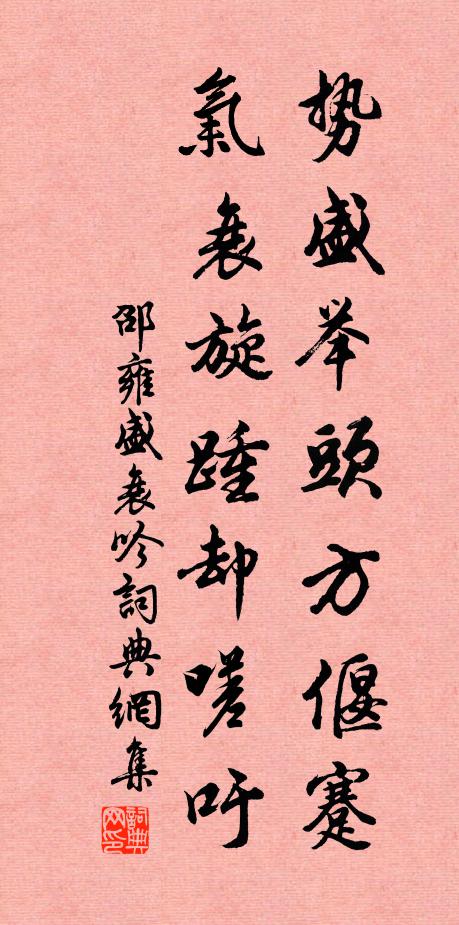 势盛举頭方偃蹇
氣衰旋踵却嗟吁
邵雍盛衰吟詞典網集
詞典网印